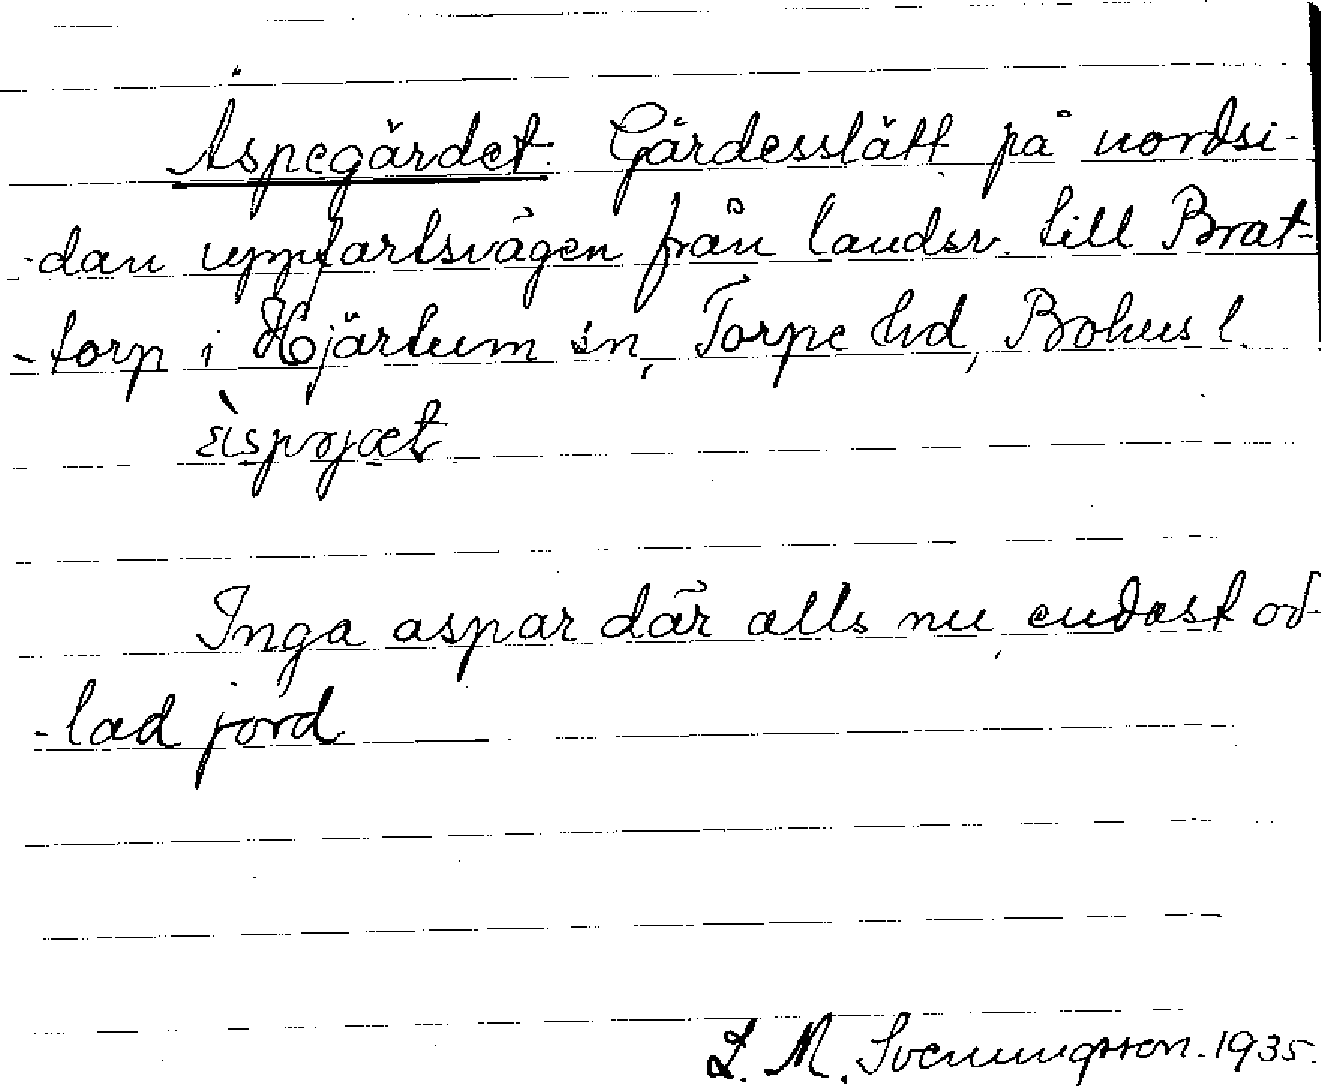 Aspegärdet: Gärdesslätt på nordsi-
-dan uppfartsvägen från landsv. till Brat-
-torp i Hjärtum sn, Torpe hd, Bohus l.
Inga aspar där alls nu, endast od-
-lad jord
L. M. Svenungsson. 1935.